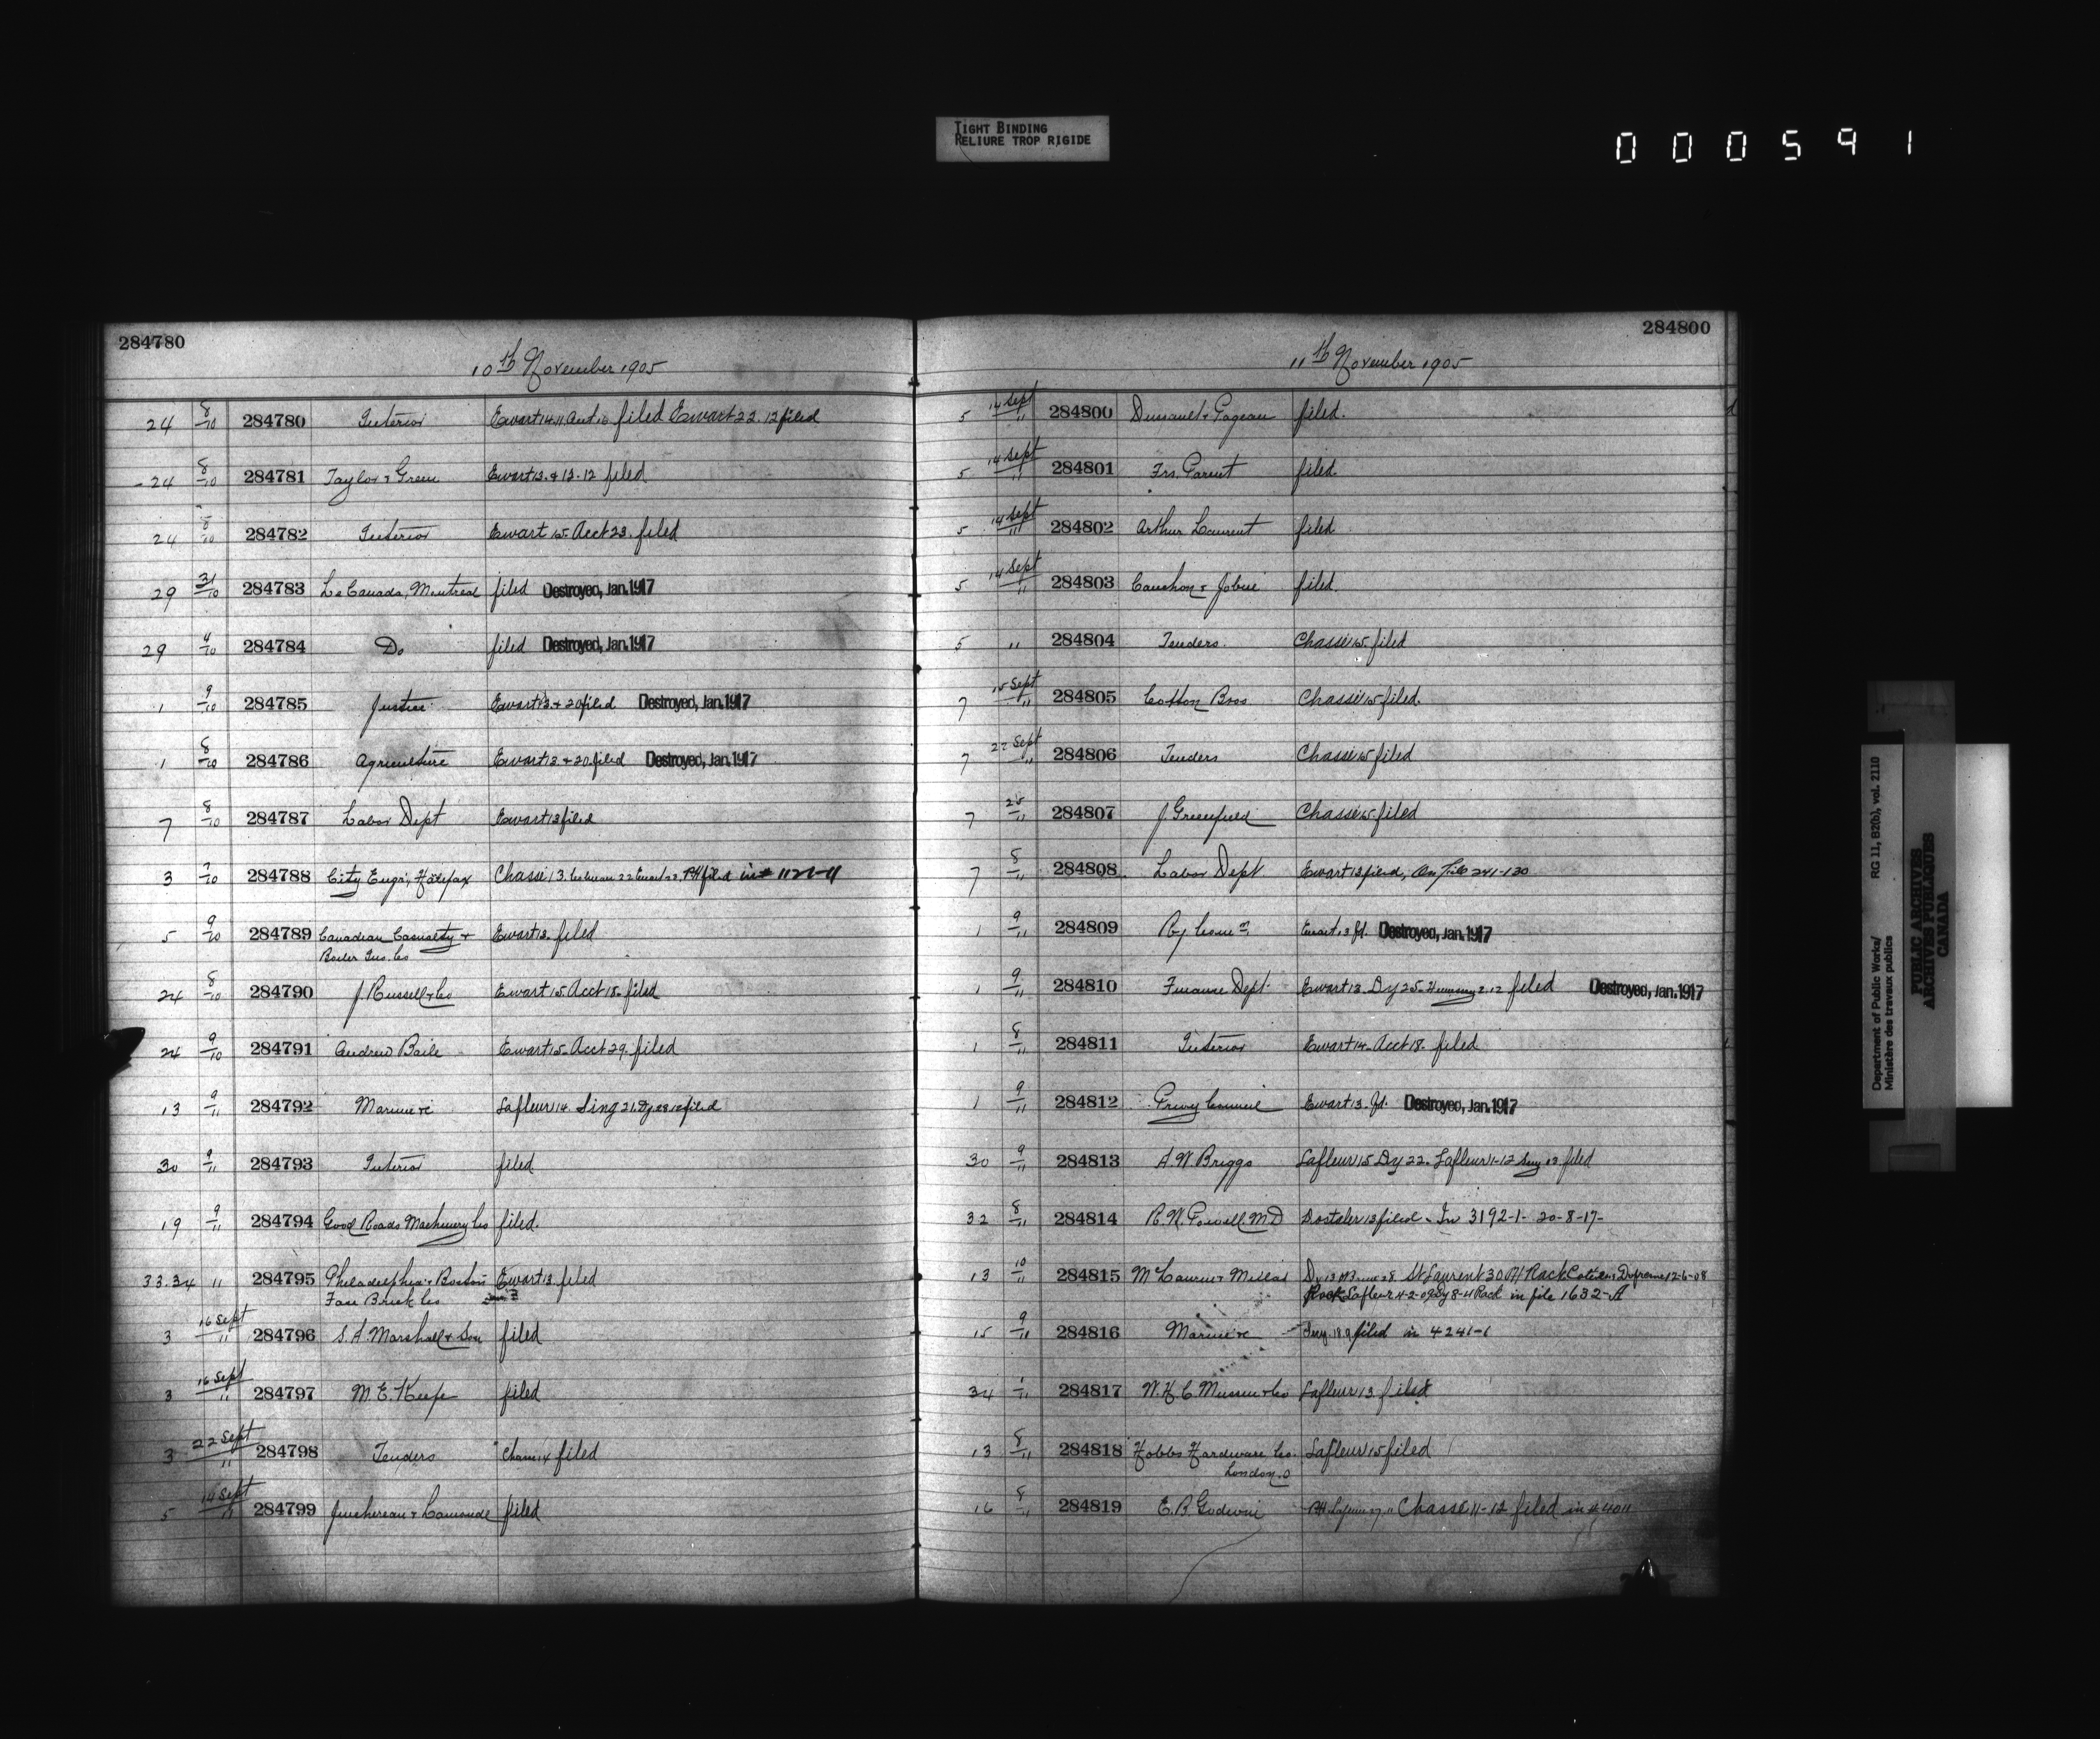 TIGHT BINDING
RELIURE TROP RIGIDE
000591
284780
10th November 1905
24 8/10 284780 Interior Ewart 14.11 filed Ewart 22.12 filed
24 8/10 284781 Taylor & Green Ewart 13. & 13.12 filed
24 8/10 284782 Interior Ewart 15. Acct 23. filed
29 31/10 284783 Le Canada, Montreal filed Destroyed, Jan. 1917
29 4/10 284784 Do filed Destroyed, Jan. 1917
1 9/10 284785 Justice Ewart 13. & 20 filed Destroyed, Jan. 1917
1 8/10 284786 Agriculture Ewart 13 & 20. filed Destroyed, Jan. 1917
7 8/10 284787 Labor Dept Ewart 13 filed
3 7/10 284788 City Engr, Halifax Chassé 13. filed in
5 9/10 284789 Canadian Casualty & Ewart 13. filed
Boiler Ins. Co
24 8/10 284790 J. Russell & Co Ewart 15. Acct 18. filed
24 9/10 284791 Andrew Baile Ewart 15. Acct 29. filed
13 9/11 284792 Marine &c Lafleur 14. Sing 21. filed
30 9/11 284793 Interior filed
19 9/11 284794 Good Roads Machinery Co filed.
33.34 " 284795 Philadelphia & Boston Ewart 13. filed
Face Brick Co
3 16 Sept/11 284796 S. A. Marshall & Son filed
3 16 Sept/11 284797 M. E. Keefe filed
3 22 Sept/11 284798 Tenders Chasse 14 filed
5 14 Sept/11 284799 Juchereau & Lamonde filed
284800
11th November 1905
5 14 Sept/11 284800 Dussault & Pageau filed.
5 14 Sept/11 284801 Frs. Parent filed.
5 14 Sept/11 284802 Arthur Laurent filed
5 14 Sept/11 284803 Cauchon & Jobin filed.
5 " 284804 Tenders. Chassé 15. filed
7 15 Sept/11 284805 Cotton Bros Chassé 15 filed.
7 22 Sept/11 284806 Tenders Chassé 15 filed
7 25/11 284807 J. Greenfield Chassé 15. filed
7 8/11 284808 Labor Dept Ewart 13 filed, On File 241-130
1 9/11 284809 Ry Comn Ewart 13 fd. Destroyed, Jan. 1917
1 9/11 284810 Finance Dept. Ewart 13. Dy 25. 2.12 filed Destroyed, Jan. 1917
1 8/11 284811 Interior Ewart 14. Acct 18. filed
1 9/11 284812 Privy Council Ewart 13. fd. Destroyed, Jan. 1917
30 9/11 284813 A. W. Briggs Lafleur 15 Dy 22. Lafleur 1-12 filed
32 8/11 284814 R. W. Powell M.D Dostaler 13 filed. In 3192-1- 20-8-17-
13 10/11 284815 McLaurin & Millar St Laurent 30 12-6-08
Lafleur 4-2-09 in file 1632-A
15 9/11 284816 Marine &c filed in 4241-1
34 1/11 284817 W. H. C. Mussen & Co Lafleur 13 filed
13 8/11 284818 Hobbs Hardware Co. Lafleur 15 filed
London. O
16 8/11 284819 E. B. Godwin Chassé 11-12 filed in
Department of Public Works/ RG 11, B2(b), vol. 2110
Ministère des travaux publics
PUBLIC ARCHIVES
ARCHIVES PUBLIQUES
CANADA